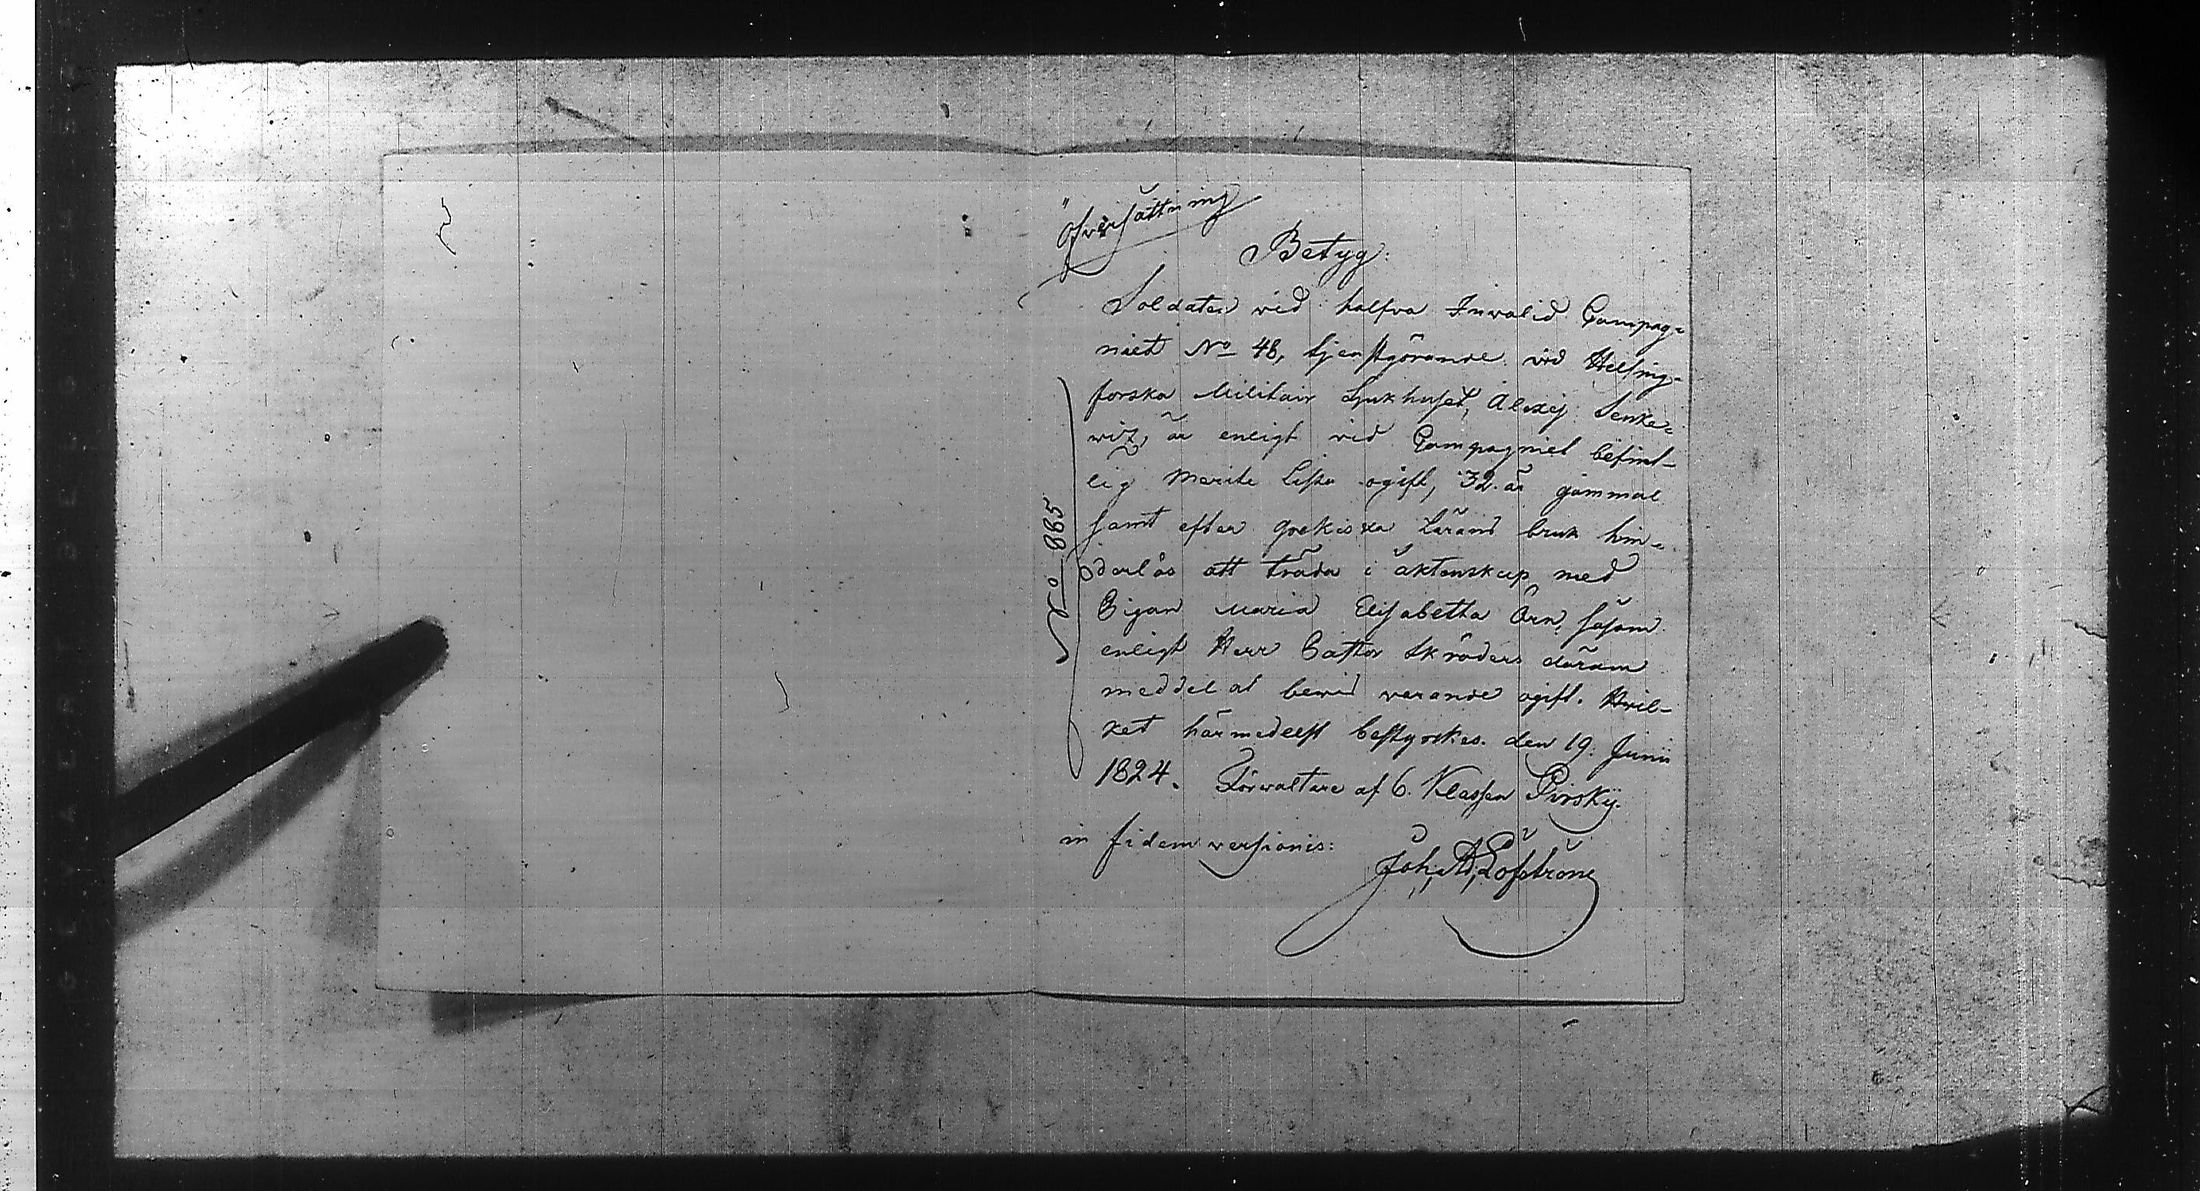 Öfversättning
Betyg:
Soldaten vid halfva Invalid Compag=
niet No 48, tjenstgörande vid Helsing-
forska Militair Sjukhuset, Alexej Senke=
witz, är enligt vid Compagniet befint-
lig Merite Lista ogift, 32 år gammal
samt efter grekiska Lärans bruk hin=
derlös att träda i äktenskap med
Pigan Maria Elisabetha Örn, såsom
enligt Herr Pastor Skröders därom
meddelat bevis varande ogift. Hvil-
ket härmedelst bestyrkes. den 19. Junii
1824. Förvaltare af 6. Klassen Pirskÿ.
No 885
in fidem versionis:
Joh, Ad, Löfström